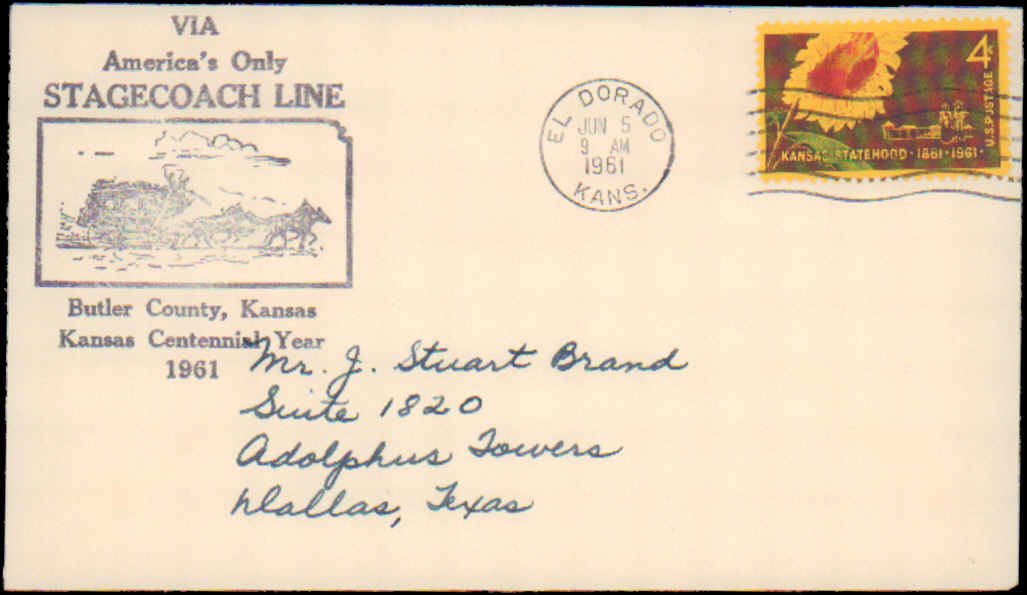 VIA
America's Only
STAGECOACH LINE
Butler County, Kansas
Kansas Centennial Year
1961
EL DORADO
JUN 5
9 AM
1961
KANS.
4¢
U.S. POSTAGE
KANSAS STATEHOOD · 1861 · 1961 ·
Mr. J. Stuart Brand
Suite 1820
Adolphus Towers
Dallas, Texas